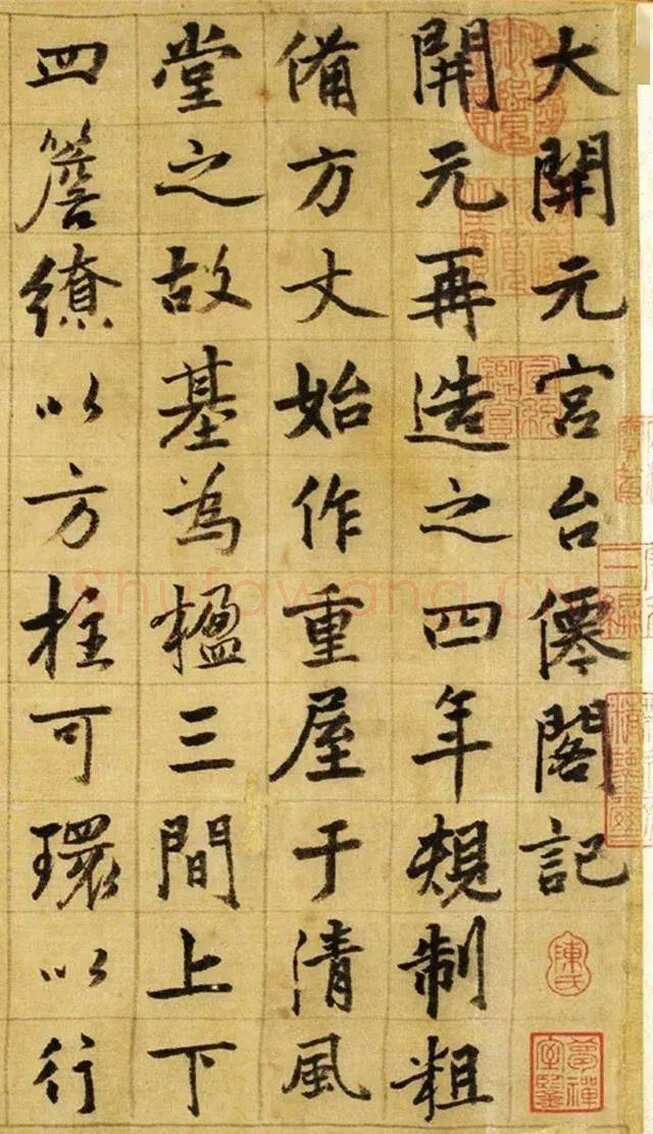 大開元宮台僊閣記
開元再造之四年䂓制粗
備方丈始作重屋于清風
堂之故基為楹三間上下
四簷繚以方柱可環以行
陳氏